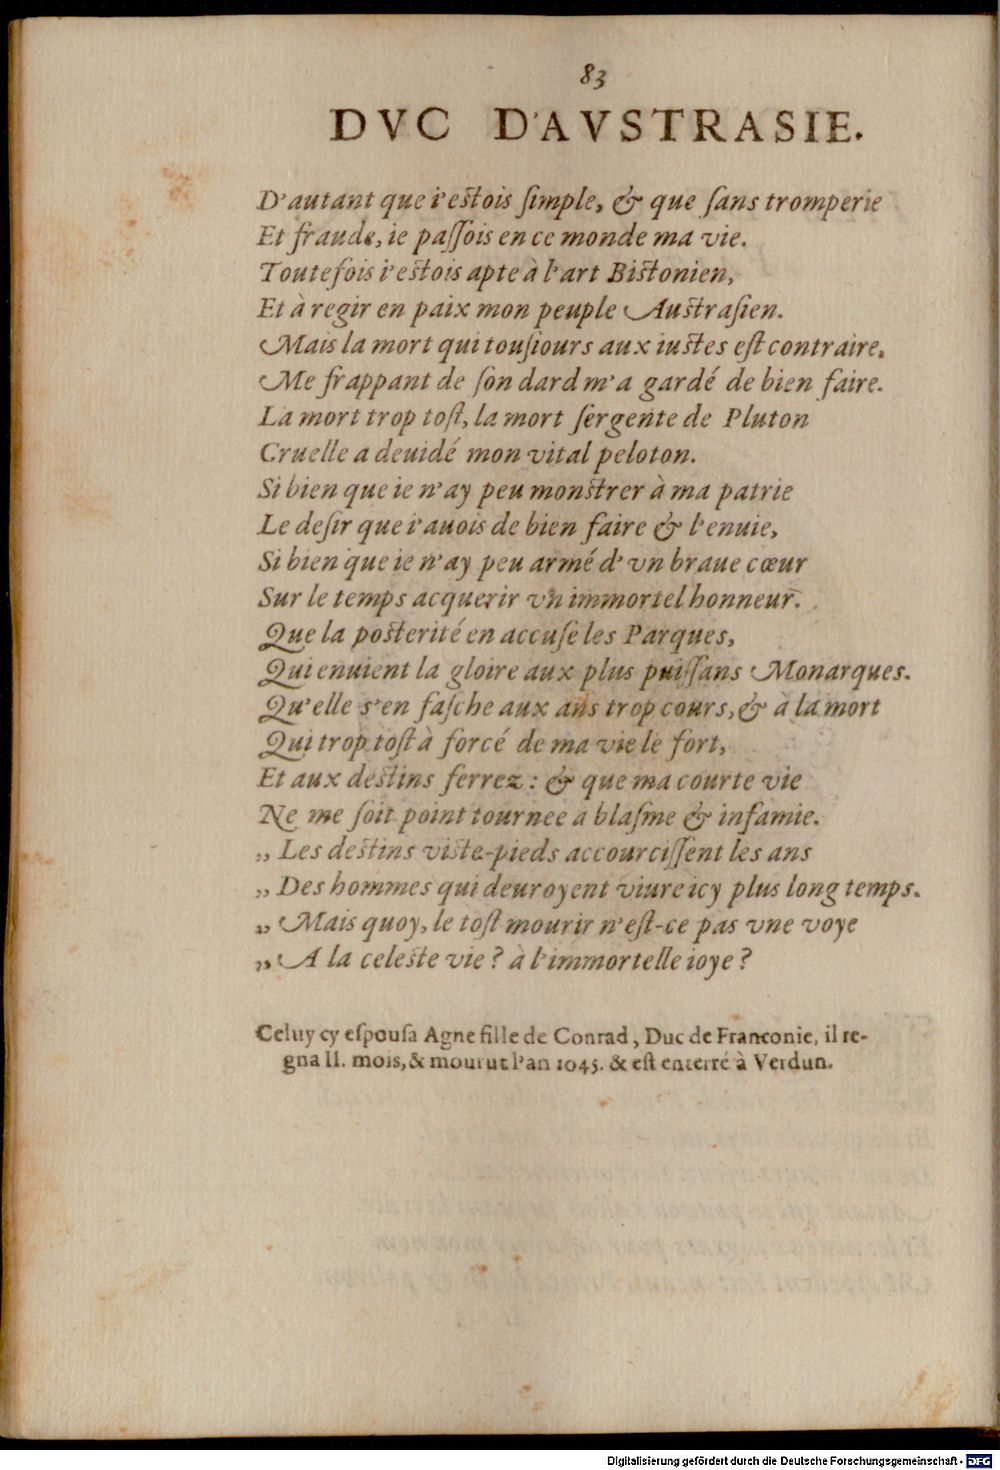 83
DVC D'AVSTRASIE.
D'autant que i'estois ſimple, & que ſans tromperie
Et fraude, ie paſſois en ce monde ma vie.
Toutefois i'estois apte à l'art Bistonien,
Et à regir en paix mon peuple Austraſien.
Mais la mort qui touſiours aux iustes eſt contraire,
Me frappant de ſon dard m'a gardé de bien faire.
La mort trop toſt, la mort ſergente de Pluton
Cruelle a deuidé mon vital peloton.
Si bien que ie n'ay peu monstrer à ma patrie
Le deſir que i'auois de bien faire & l'enuie,
Si bien que ie n'ay peu armé d'vn braue cœur
Sur le temps acquerir vn immortel honneur.
Que la posterité en accuſe les Parques,
Qui enuient la gloire aux plus puiſſans Monarques.
Qu'elle s'en faſche aux ans trop cours, & à la mort
Qui trop toſt à forcé de ma vie le fort,
Et aux destins ferrez : & que ma courte vie
Ne me ſoit point tournee a blaſme & infamie.
„ Les destins viste-pieds accourciſſent les ans
„ Des hommes qui deuroyent viure icy plus long temps.
„ Mais quoy, le toſt mourir n'eſt-ce pas vne voye
„ A la celeste vie ? à l'immortelle ioye ?
Celuy cy eſpouſa Agne fille de Conrad, Duc de Franconie, il re-
gna II. mois, & mourut l'an 1045. & eſt enterré à Verdun.
Digitalisierung gefördert durch die Deutsche Forschungsgemeinschaft - DFG